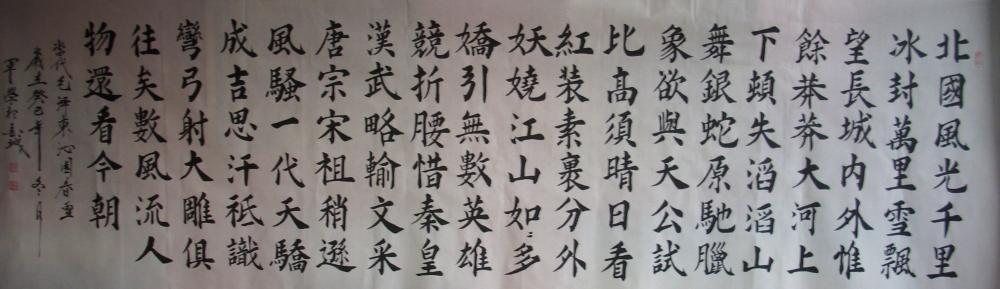 北國風光千里
冰封萬里雪飄
望長城内外惟
餘莽莽大河上
下頓失滔滔山
舞銀蛇原馳臘
象欲與天公試
比高須晴日看
紅装素裹分外
妖嬈江山如多
嬌引無數英雄
競折腰惜秦皇
漢武略輸文采
唐宗宋祖稍遜
風騷一代天驕
成吉思汗祇識
彎弓射大雕俱
往矣數風流人
物還看今朝
毛澤東沁園春雪
癸巳年冬月